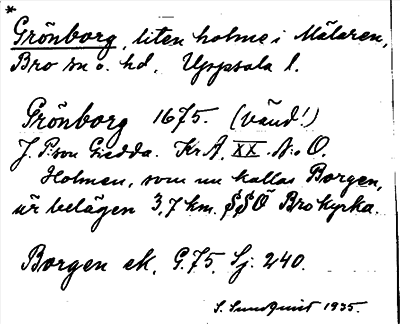 *
Grönborg, liten holme i Mälaren,
Bro sn o. hd, Uppsala l.
Grönborg 1675. (vänd!)
J. P:son Giedda. Kr A, XX. N:o O.
Holmen, som nu kallas Borgen,
är belägen 3,7 km. SSÖ Bro kyrka.
Borgen ek. G.75. Sj: 240.
S. Sundquist 1935.